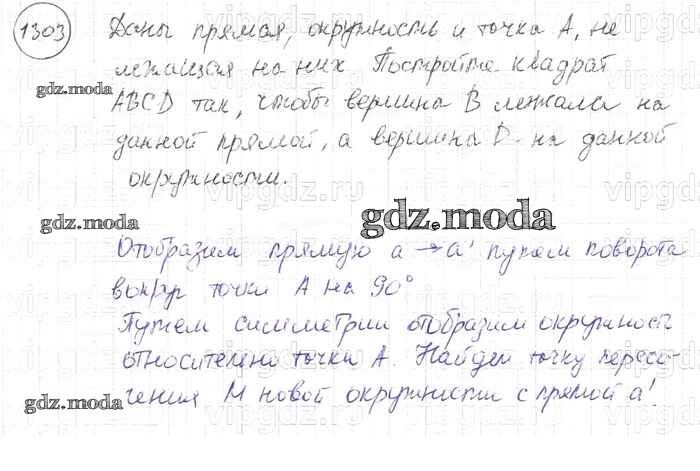 1303 Даны прямая, окружность и точка A, не
лежащая на них Постройте квадрат
gdz.moda
ABCD так, чтобы вершина B лежала на
данной прямой, а вершина D - на данной
окружности.
gdz.moda
gdz.moda
Отобразим прямую a → a' путем поворота
вокруг точки A на 90°
Путем симметрии отобразим окружность
относительно точки A. Найдем точку пересе-
gdz.moda
чения M новой окружности с прямой a'.